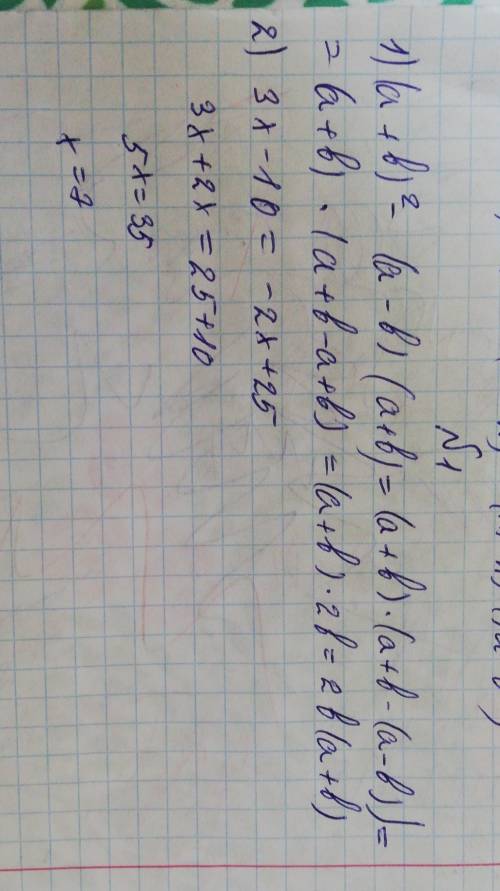 N1
1) (a + b)² - (a - b) (a+b) = (a+b)·(a+b-(a-b)) =
= (a+b) · (a+b-a+b) = (a+b)·2b = 2b(a+b)
2) 3x - 10 = -2x+25
3x+2x = 25+10
5x = 35
x = 7